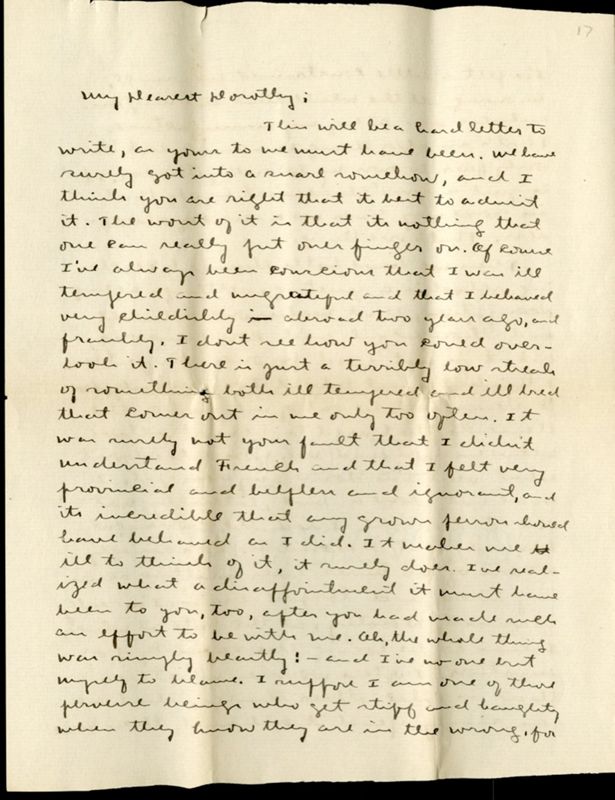 17
My Dearest Dorothy;
This will be a hard letter to
write, as yours to me must have been. We have
surely got into a snarl somehow, and I
think you are right that its best to admit
it. The worst of it is that its nothing that
one can really put ones finger on. Of course
I've always been conscious that I was ill
tempered and ungrateful and that I behaved
very childishly abroad two years ago, and
frankly, I dont see how you could over-
look it. There is just a terribly low streak
of something both ill tempered and ill bred
that comes out in me only too often. It
was surely not your fault that I didn't
understand French and that I felt very
provincial and helpless and ignorant, and
its incredible that any grown person should
have behaved as I did. It makes me
ill to think of it, it surely does. I've real-
ized what a disappointment it must have
been to you, too, after you had made such
an effort to be with me. Oh, the whole thing
was simply beastly! - and I've no one but
myself to blame. I suppose I am one of those
perverse beings who get stiff and haughty
when they know they are in the wrong, for